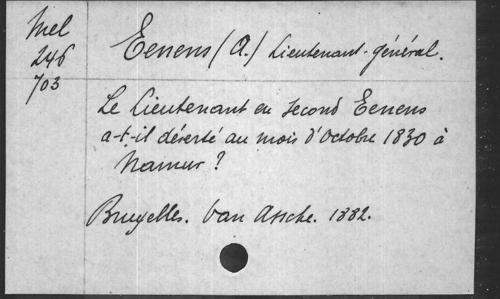 Mel
246
703
Eenens (A.) Lieutenant-général.
Le Lieutenant en second Eenens
a-t-il déserté au mois d'Octobre 1830 à
Namur?
Bruxelles. Van Assche. 1882.